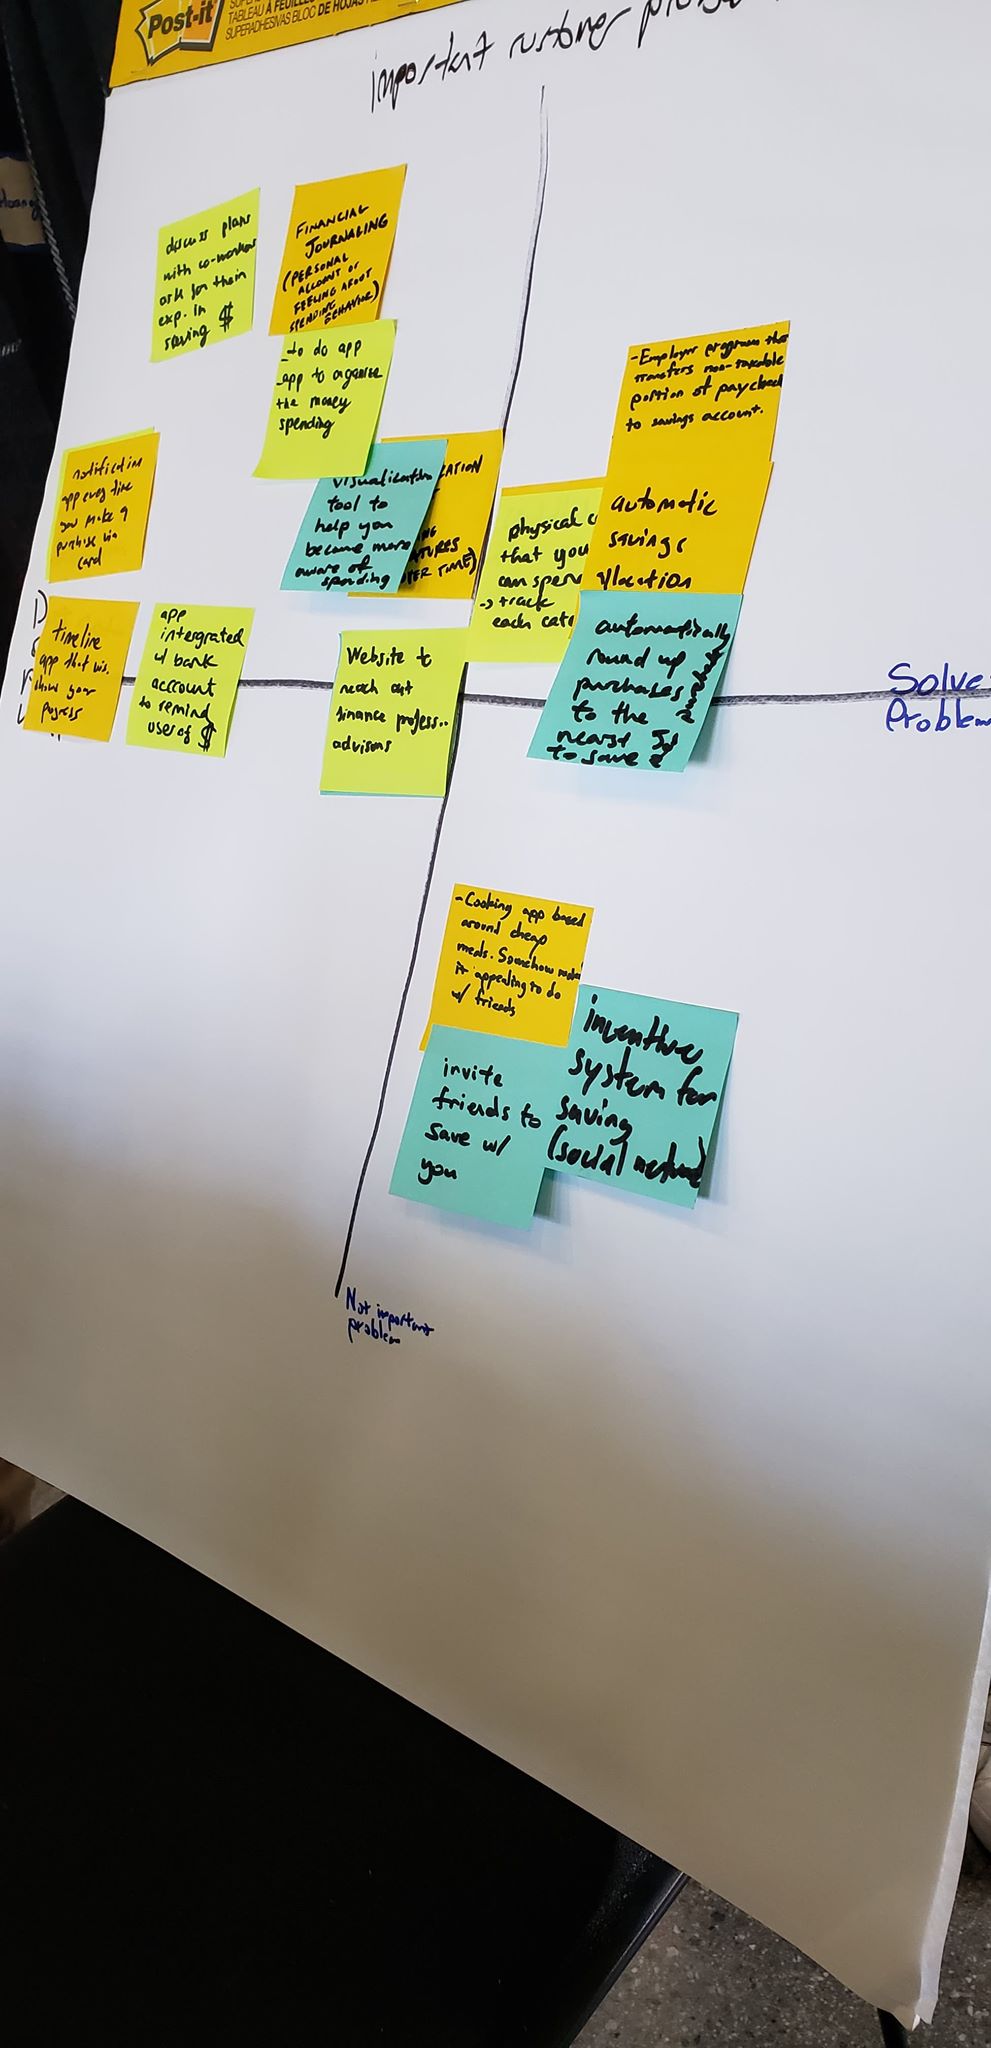 Post-it
TABLEAU À FEUILLES
SUPERADHESIVAS BLOC DE HOJAS
important customer
discuss plans
with co-workers
ask for their
exp. in
saving $
FINANCIAL
JOURNALING
(PERSONAL
ACCOUNT OF
FEELING ABOUT
SPENDING
BEHAVIOR)
- to do app
- app to organize
the money
spending
- Employer programs that
transfers non-taxable
portion of paycheck
to savings account.
notification
app every time
you make a
purchase via
card
visualization
tool to
help you
become more
aware of
spending
OVER TIME)
physical
that you
can spend
-> track
each
automatic
savings
allocation
timeline
app that
shows your
progress
app
intergrated
w/ bank
account
to remind
user of $
Website to
reach out
finance profess..
advisors
automatically
round up
purchases
to the
nearst 5$
to save
Solve
Problem
- Cooking app based
around cheap
meals. Somehow make
it appealing to do
w/ friends
invite
friends to
save w/
you
incentive
system for
saving
(social network)
Not important
problem